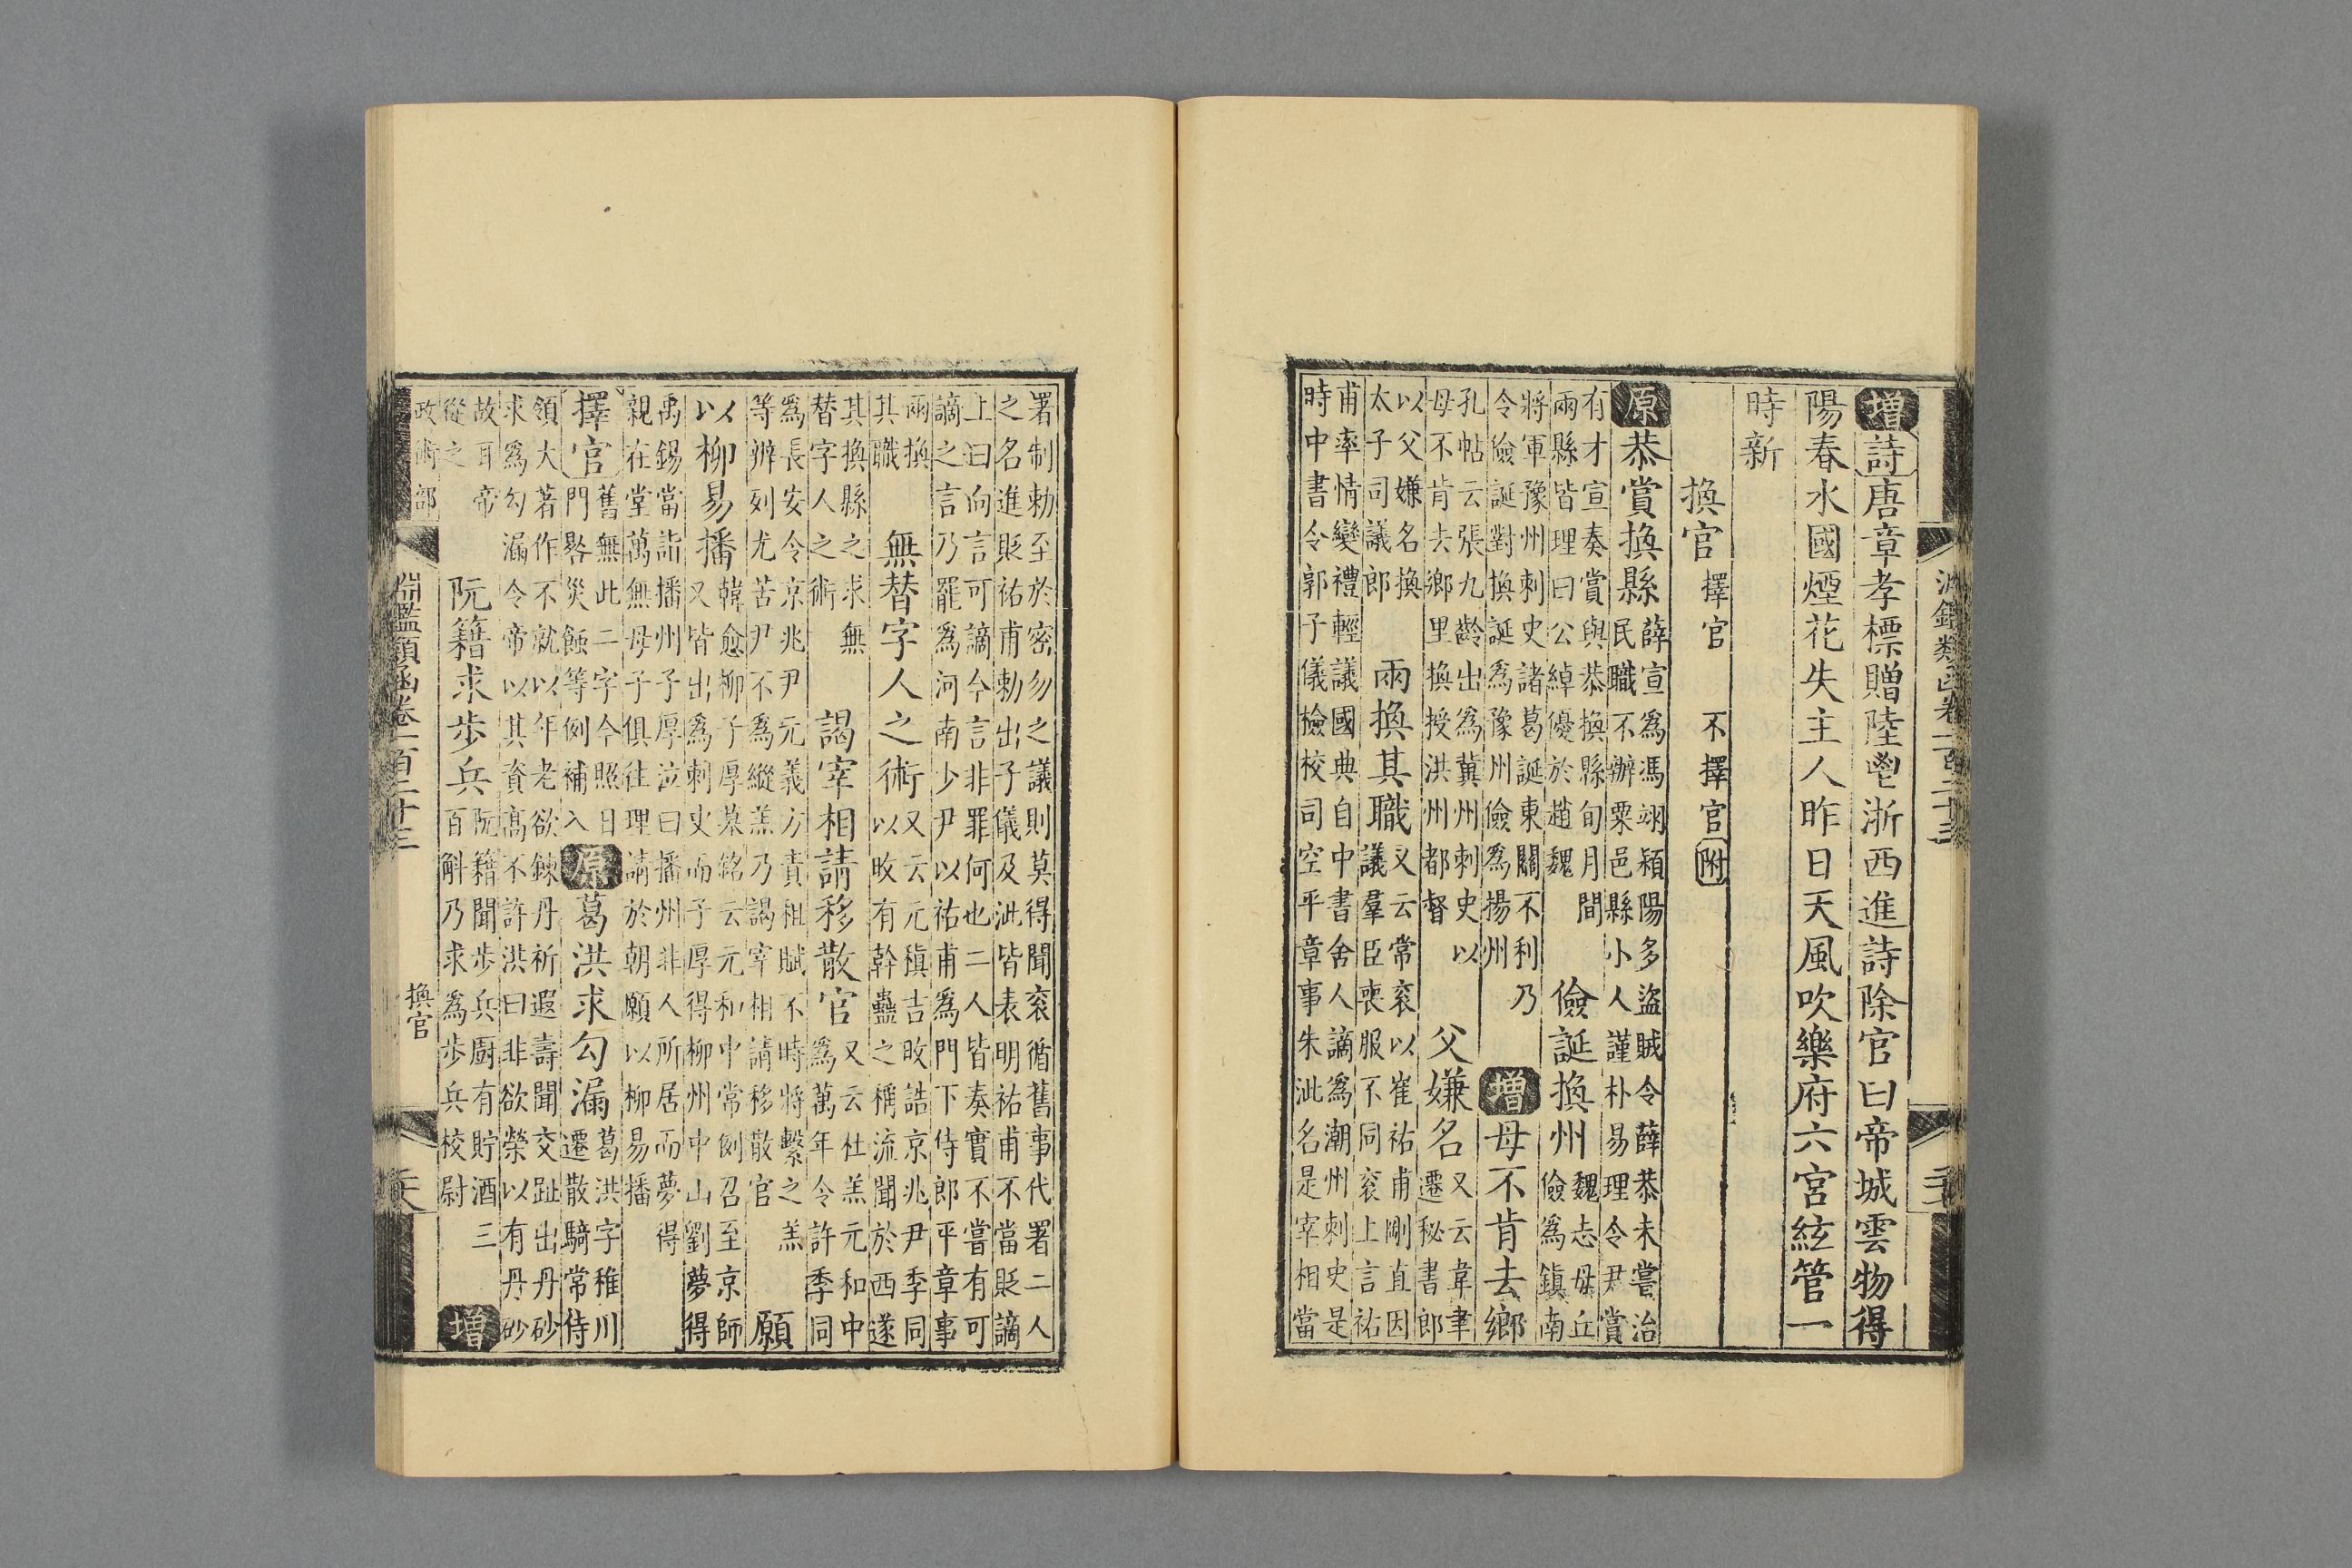 增詩唐章孝標贈陸鬯浙西進詩除官曰帝城雲物得
陽春水國煙花失主人昨日天風吹樂府六宮絃管一
時新
換官 擇官 不擇官附
原恭賞換縣 薛宣爲馮翊潁陽多盜賊令薛恭未嘗治
民職不辦粟邑縣小人謹朴易理令尹賞
有才宣奏賞與恭換縣旬月間
兩縣皆理曰公綽優於趙魏
儉誕換州 魏志毋丘
儉爲鎮南
將軍豫州刺史諸葛誕東關不利乃
令儉誕對換誕爲豫州儉爲揚州
增母不肯去鄉
孔帖云張九齡出爲冀州刺史以
母不肯去鄉里換授洪州都督
父嫌名 又云韋聿
遷秘書郎
以父嫌名換
太子司議郎
兩換其職 又云常衮以崔祐甫剛直因
議羣臣喪服不同衮上言祐
甫率情變禮輕議國典自中書舍人謫爲潮州刺史是
時中書令郭子儀檢校司空平章事朱泚名是宰相當
署制勅至於密勿之議則莫得聞衮循舊事代署二人
之名進貶祐甫勅出子儀及泚皆表明祐甫不當貶謫
上曰向言可謫今言非罪何也二人皆奏實不嘗有可
謫之言乃罷爲河南少尹以祐甫爲門下侍郎平章事
兩換
其職
無替字人之術 又云元稹吉旼誥京兆尹季同
以旼有幹蠱之稱流聞於西遂
其換縣之求無
替字人之術
謁宰相請移散官 又云杜羔元和中
爲萬年令許季同
爲長安令京兆尹元義方責租賦不時將繫之羔
等辨列尤苦尹不爲縱羔乃謁宰相請移散官
願
以柳易播 韓愈柳子厚墓銘云元和中常例召至京師
又皆出爲刺史而子厚得柳州中山劉夢得
禹錫當詣播州子厚泣曰播州非人所居而夢得
親在堂萬無母子俱往理請於朝願以柳易播
擇官 舊無此二字今照日
門晷災蝕等例補入
原葛洪求勾漏 葛洪字稚川
遷散騎常侍
領大著作不就以年老欲鍊丹祈遐壽聞交趾出丹砂
求爲勾漏令帝以其資高不許洪曰非欲榮以有丹砂
故耳帝
從之
阮籍求步兵 阮籍聞步兵廚有貯酒三
百斛乃求爲步兵校尉
增
政術部 淵鑑類函卷一百二十三 換官